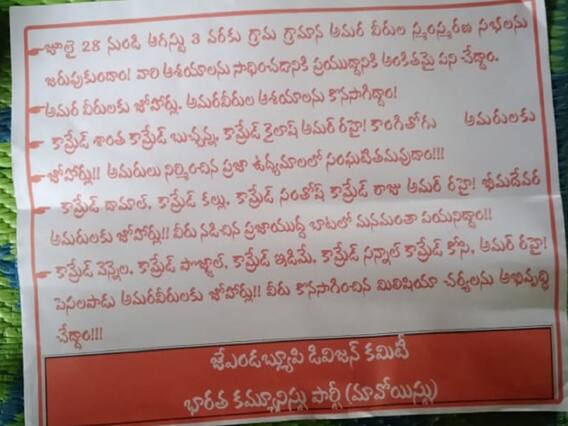 జూలై 28 నుండి ఆగస్టు 3 వరకు గ్రామ గ్రామాన అమర వీరుల స్మంస్మరణ సభలను
జరుపుకుందాం! వారి ఆశయాలను సాధించడానికి ప్రయుద్దానికి అంకితమై పని చేద్దాం.
అమర వీరులకు జోహార్లు. అమరవీరుల ఆశయాలను కొనసాగిద్దాం!
కామ్రేడ్ శాంత కామ్రేడ్ బుచ్చన్న, కామ్రేడ్ కైలాష్ అమర్ రహై! కాంగితోగు అమరులకు
జోహార్లు!! అమరులు నిర్మించిన ప్రజా ఉద్యమాలలో సంఘటితమవుదాం!!!
కామ్రేడ్ దామాల్, కామ్రేడ్ కల్లు, కామ్రేడ్ సంతోష్ కామ్రేడ్ రాజు అమర్ రహై! భీమదేవర
అమరులకు జోహార్లు!! వీరు నడిచిన ప్రజాయుద్ధ బాటలో మనమంతా పయనిద్దాం!!
కామ్రేడ్ వెన్నెల, కామ్రేడ్ పొజ్జాల్, కామ్రేడ్ ఇడిమే, కామ్రేడ్ సన్నాల్ కామ్రేడ్ కోసి, అమర్ రహై!
పెసలపాడు అమరవీరులకు జోహార్లు!! వీరు కొనసాగించిన మిలీషియా చర్యలను అభివృద్ధి
చేద్దాం!!!
జేఎండబ్ల్యుపి డివిజన్ కమిటీ
భారత కమ్యూనిస్టు పార్టీ (మావోయిస్టు)